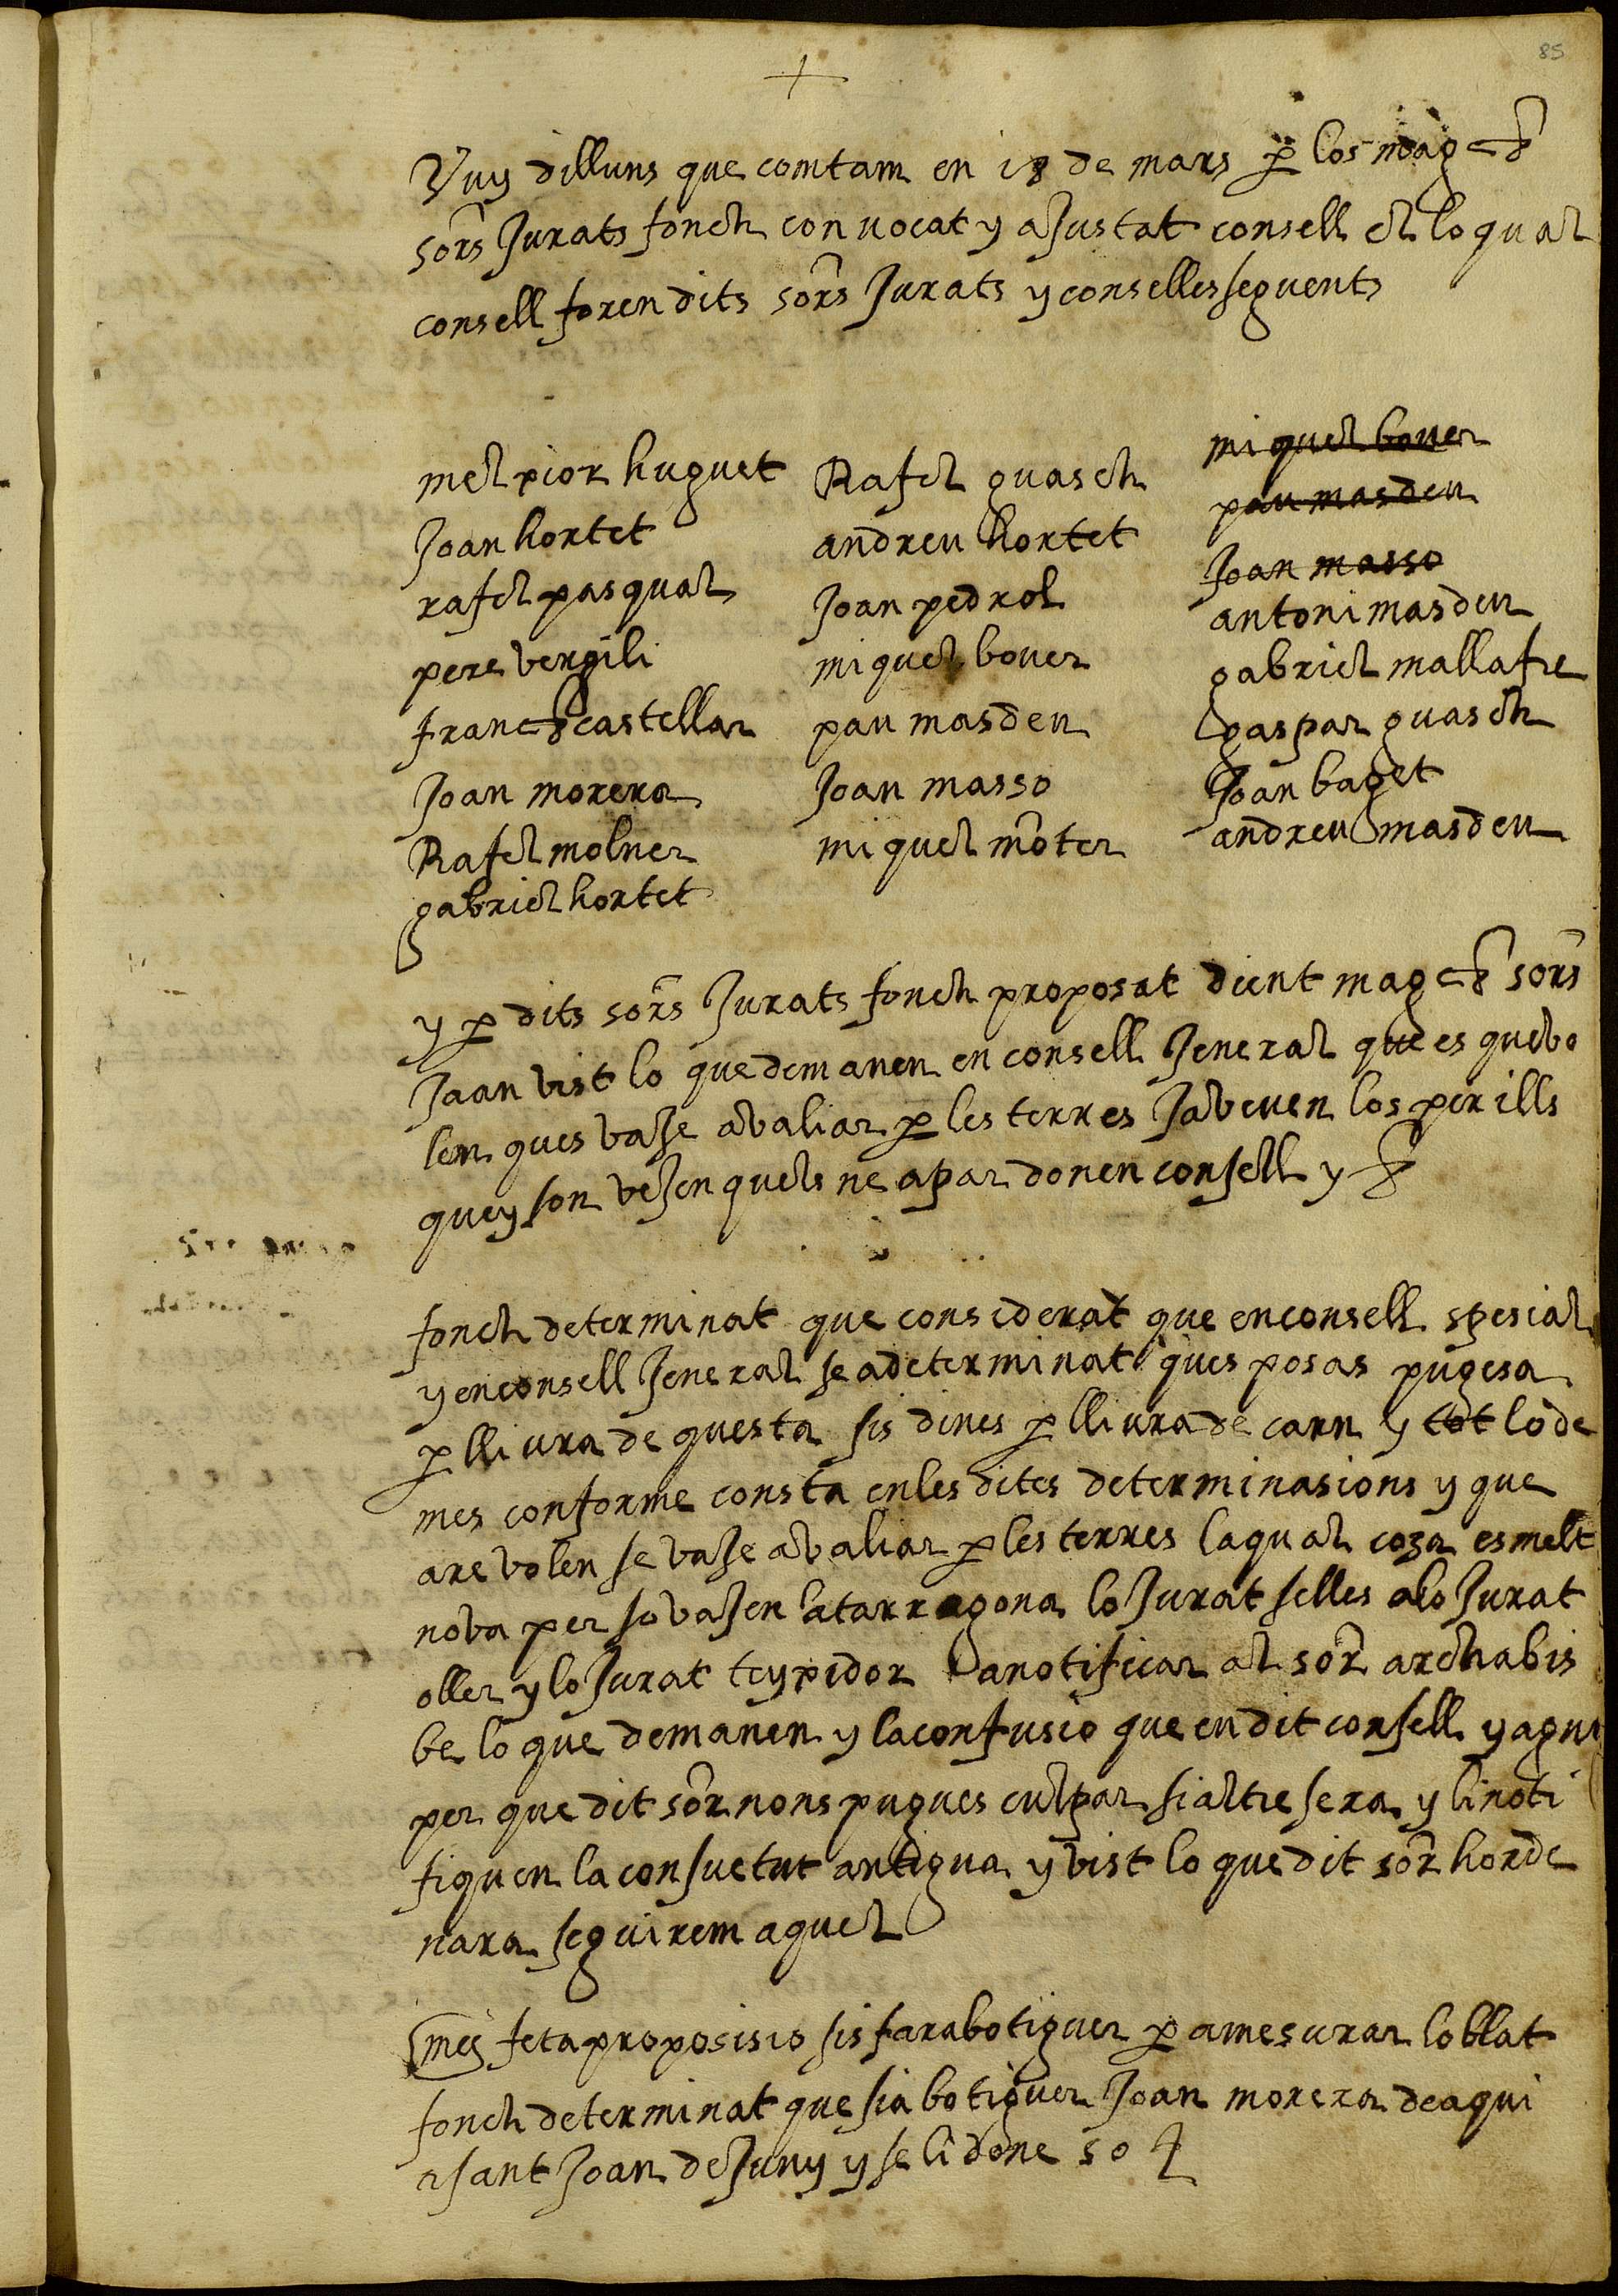 85
+
Vuy dilluns que comtam en 18 de mars p los mag cs
sors Jurats fonch convocat y aJustat consell el lo qual
consell foren dits sors Jurats y conselles seguents
melpior huguet
Joan hortet
rafel pasqual
pere vergili
franc castellar
Joan morera
Rafel molner
gabriel hortet
Rafel guasch
andreu hortet
Joan pedrol
miquel bover
pau masdeu
Joan masso
miquel moter
miquel bover
pau masdeu
Joan masso
antoni masdeu
gabriel mallafre
gaspar guasch
Joan baget
andreu masdeu
y p dits sors Jurats fonch proposat dient mag cs sors
Jaan vist lo que demanen en consell Jeneral que es que vo
len ques vaJe avaliar p les terres Ja veuen los perills
quey son veJen quels ne apar donen consell y
fonch determinat que considerat que en consell spesial
y en consell Jeneral se a determinat ques posas pugesa
p lliura de questa sis dines p lliura de carn y tot lo de
mes conforme consta en les dites determinasions y que
are volen se vaJe avaliar p les terres la qual coza es molt
nova per so vaJen a tarragona lo Jurat selles a lo Jurat
oller y lo Jurat teypidor a notificar al sor archabis
be lo que demanen y la confusio que en dit consell y agui
per que dit sor nons pugues culpar si altre sera y li noti
fiquen la consuetut antigua y vist lo que dit sor horde
nara seguirem aquel
mes feta proposisio sis fara botiguer p a mesurar lo blat
fonch determinat que sia botiguer Joan morera de aqui
a sant Joan de Juny y se li done 50